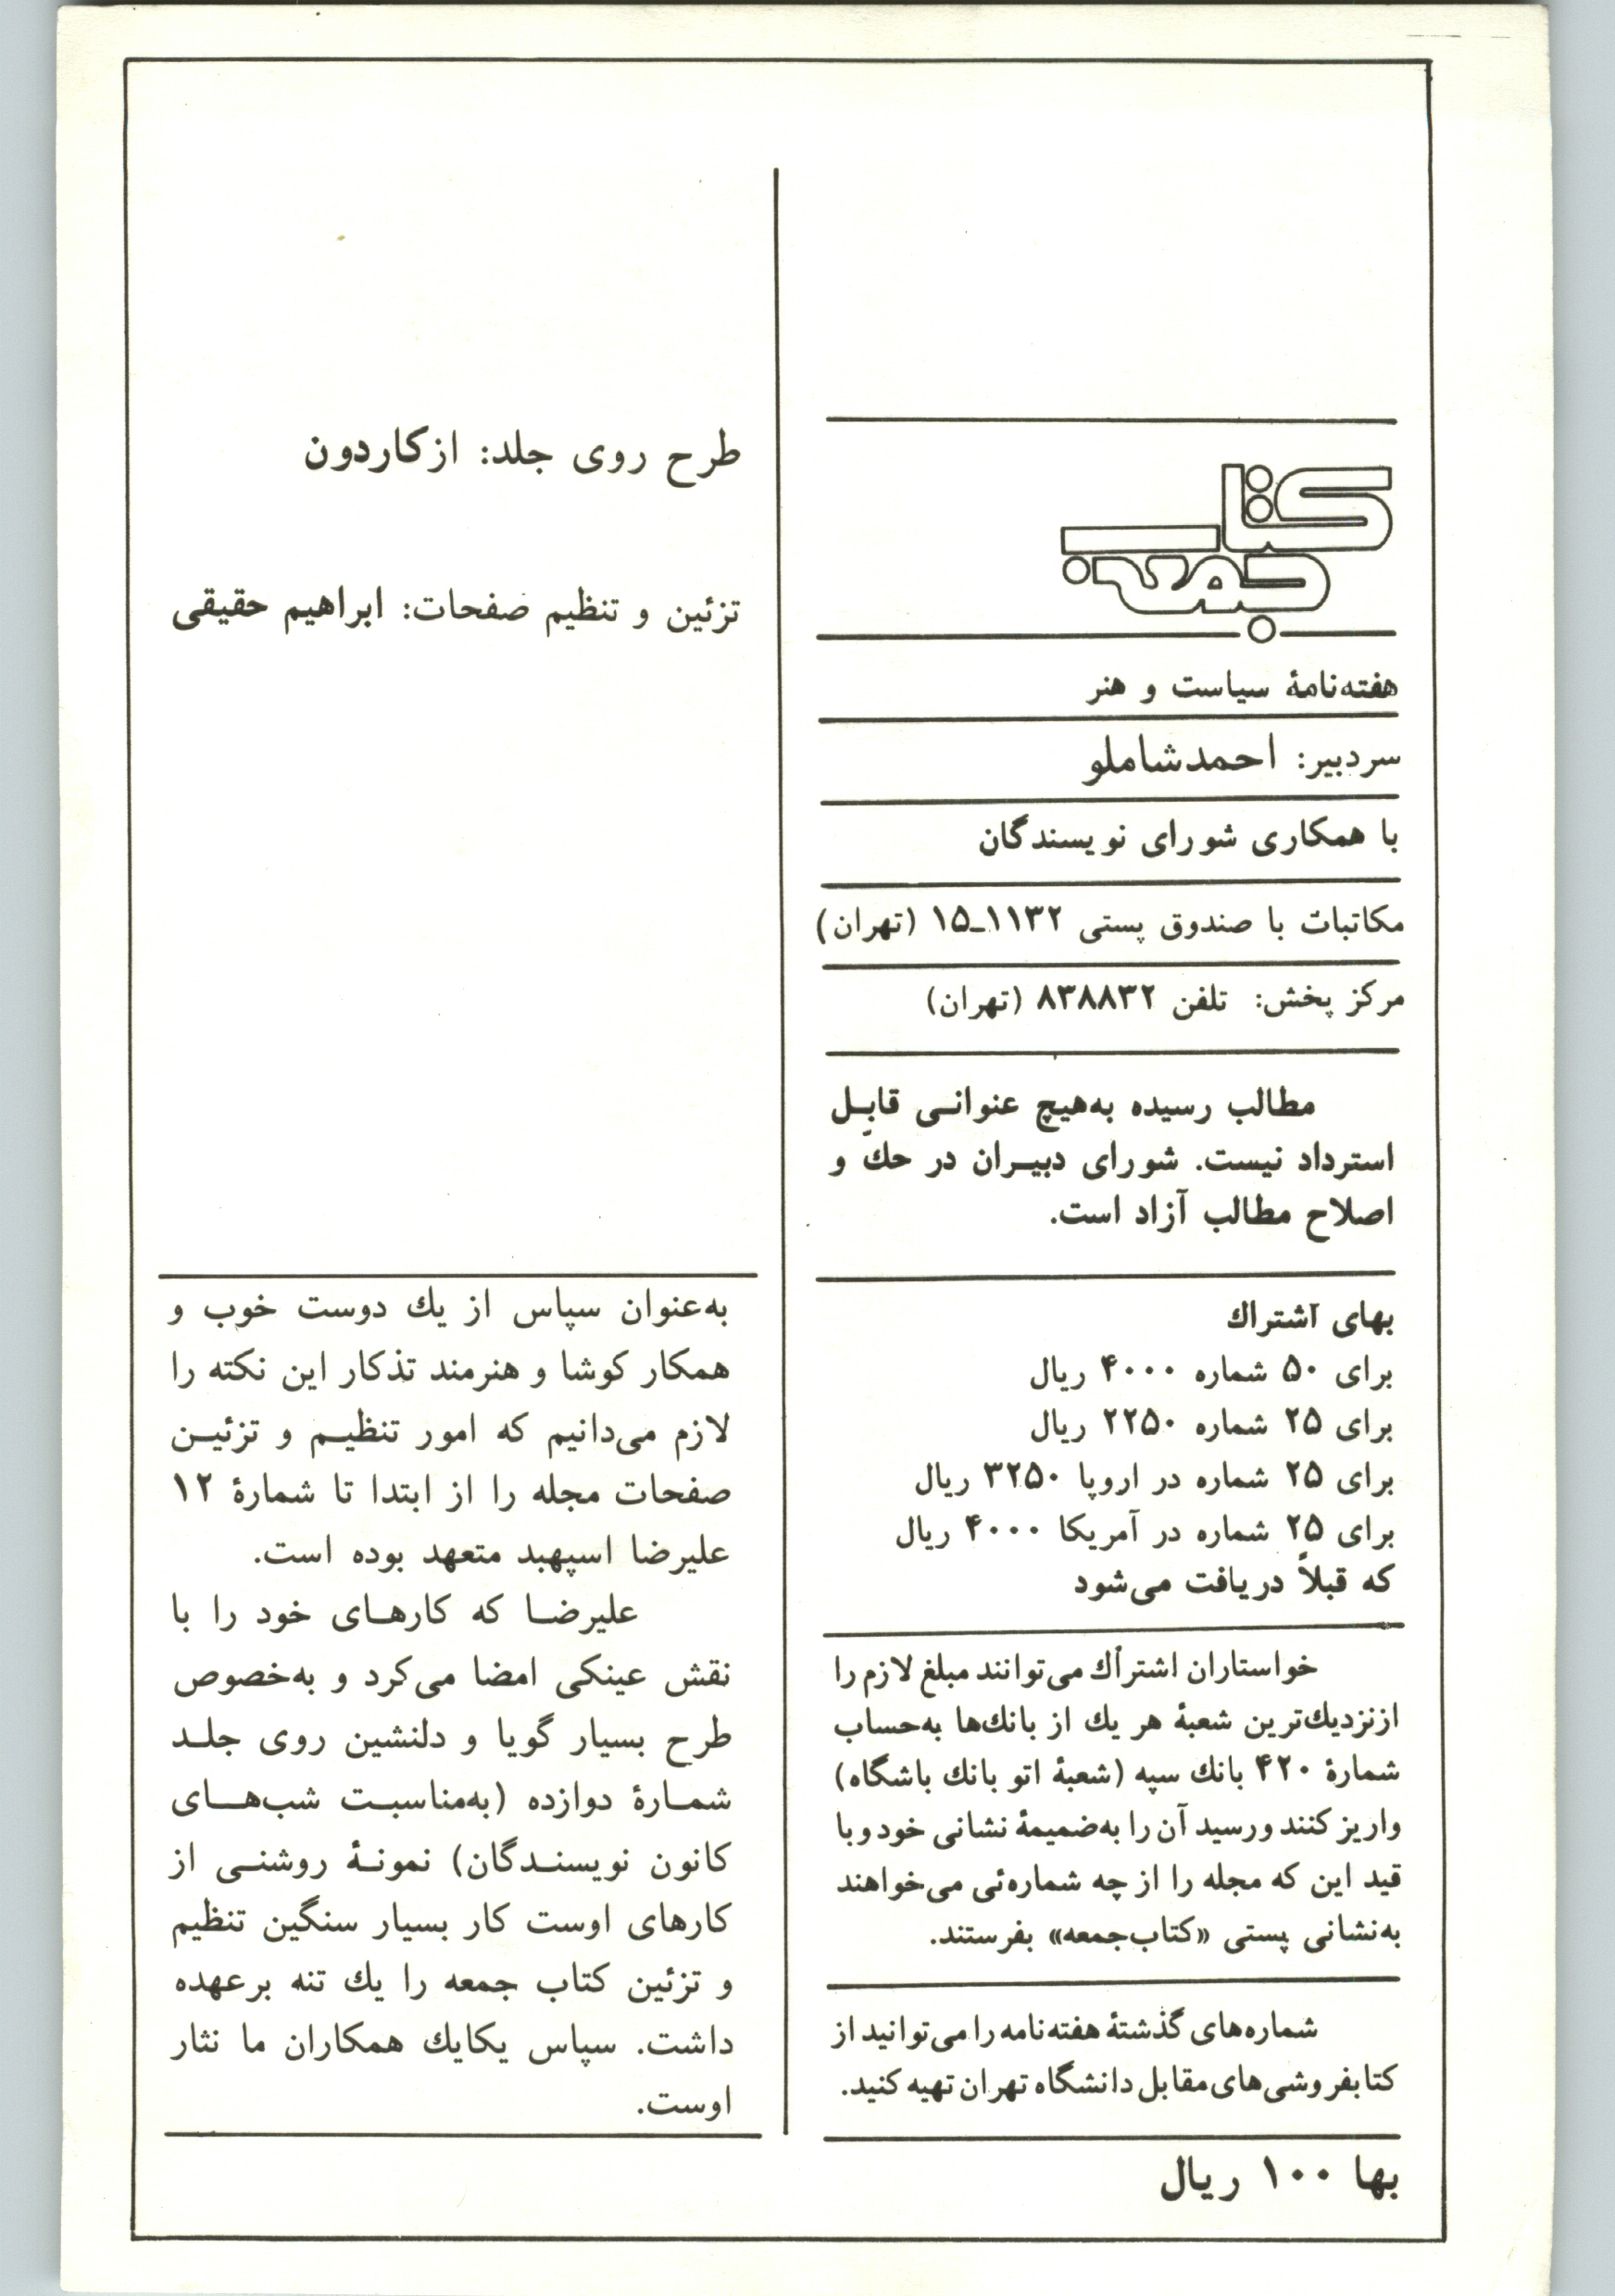 کتاب
جمعه
هفته‌نامهٔ سیاست و هنر
سردبیر: احمدشاملو
با همکاری شورای نویسندگان
مکاتبات با صندوق پستی ۱۱۳۲ـ۱۵ (تهران)
مرکز پخش: تلفن ۸۳۸۸۳۲ (تهران)
مطالب رسیده به‌هیچ عنوانـی قابـل
استرداد نیست. شورای دبیـران در حك و
اصلاح مطالب آزاد است.
بهای اشتراك
برای ۵۰ شماره ۴۰۰۰ ریال
برای ۲۵ شماره ۲۲۵۰ ریال
برای ۲۵ شماره در اروپا ۳۲۵۰ ریال
برای ۲۵ شماره در آمریکا ۴۰۰۰ ریال
که قبلاً دریافت می‌شود
خواستاران اشتراك می‌توانند مبلغ لازم را
ازنزدیك‌ترین شعبهٔ هر یك از بانك‌ها به‌حساب
شمارهٔ ۴۲۰ بانك سپه (شعبهٔ اتو بانك باشگاه)
واریز کنند و رسید آن را به‌ضمیمهٔ نشانی خود و با
قید این که مجله را از چه شماره‌ئی می‌خواهند
به‌نشانی پستی «کتاب‌جمعه» بفرستند.
شماره‌های گذشتهٔ هفته‌نامه را می‌توانید از
کتابفروشی‌های مقابل دانشگاه تهران تهیه کنید.
بها ۱۰۰ ریال
طرح روی جلد: ازکاردون
تزئین و تنظیم صفحات: ابراهیم حقیقی
به‌عنوان سپاس از یك دوست خوب و
همکار کوشا و هنرمند تذکار این نکته را
لازم می‌دانیم که امور تنظیـم و تزئیـن
صفحات مجله را از ابتدا تا شمارهٔ ۱۲
علیرضا اسپهبد متعهد بوده است.
علیرضـا که کارهـای خود را با
نقش عینکی امضا می‌کرد و به‌خصوص
طرح بسیار گویا و دلنشین روی جلـد
شمـارهٔ دوازده (به‌مناسبـت شب‌هـای
کانون نویسنـدگان) نمونـهٔ روشنـی از
کارهای اوست کار بسیار سنگین تنظیم
و تزئین کتاب جمعه را یك تنه برعهده
داشت. سپاس یکایك همکاران ما نثار
اوست.